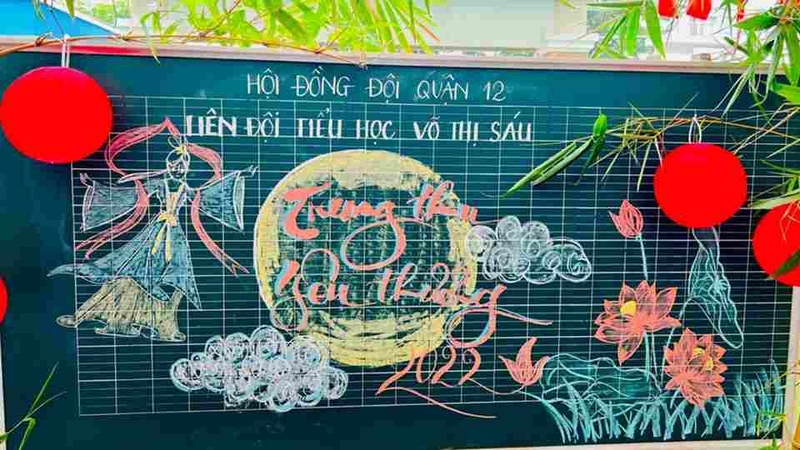 HỘI ĐỒNG ĐỘI QUẬN 12
LIÊN ĐỘI TIỂU HỌC VÕ THỊ SÁU
Trung thu
Yêu thương
2022